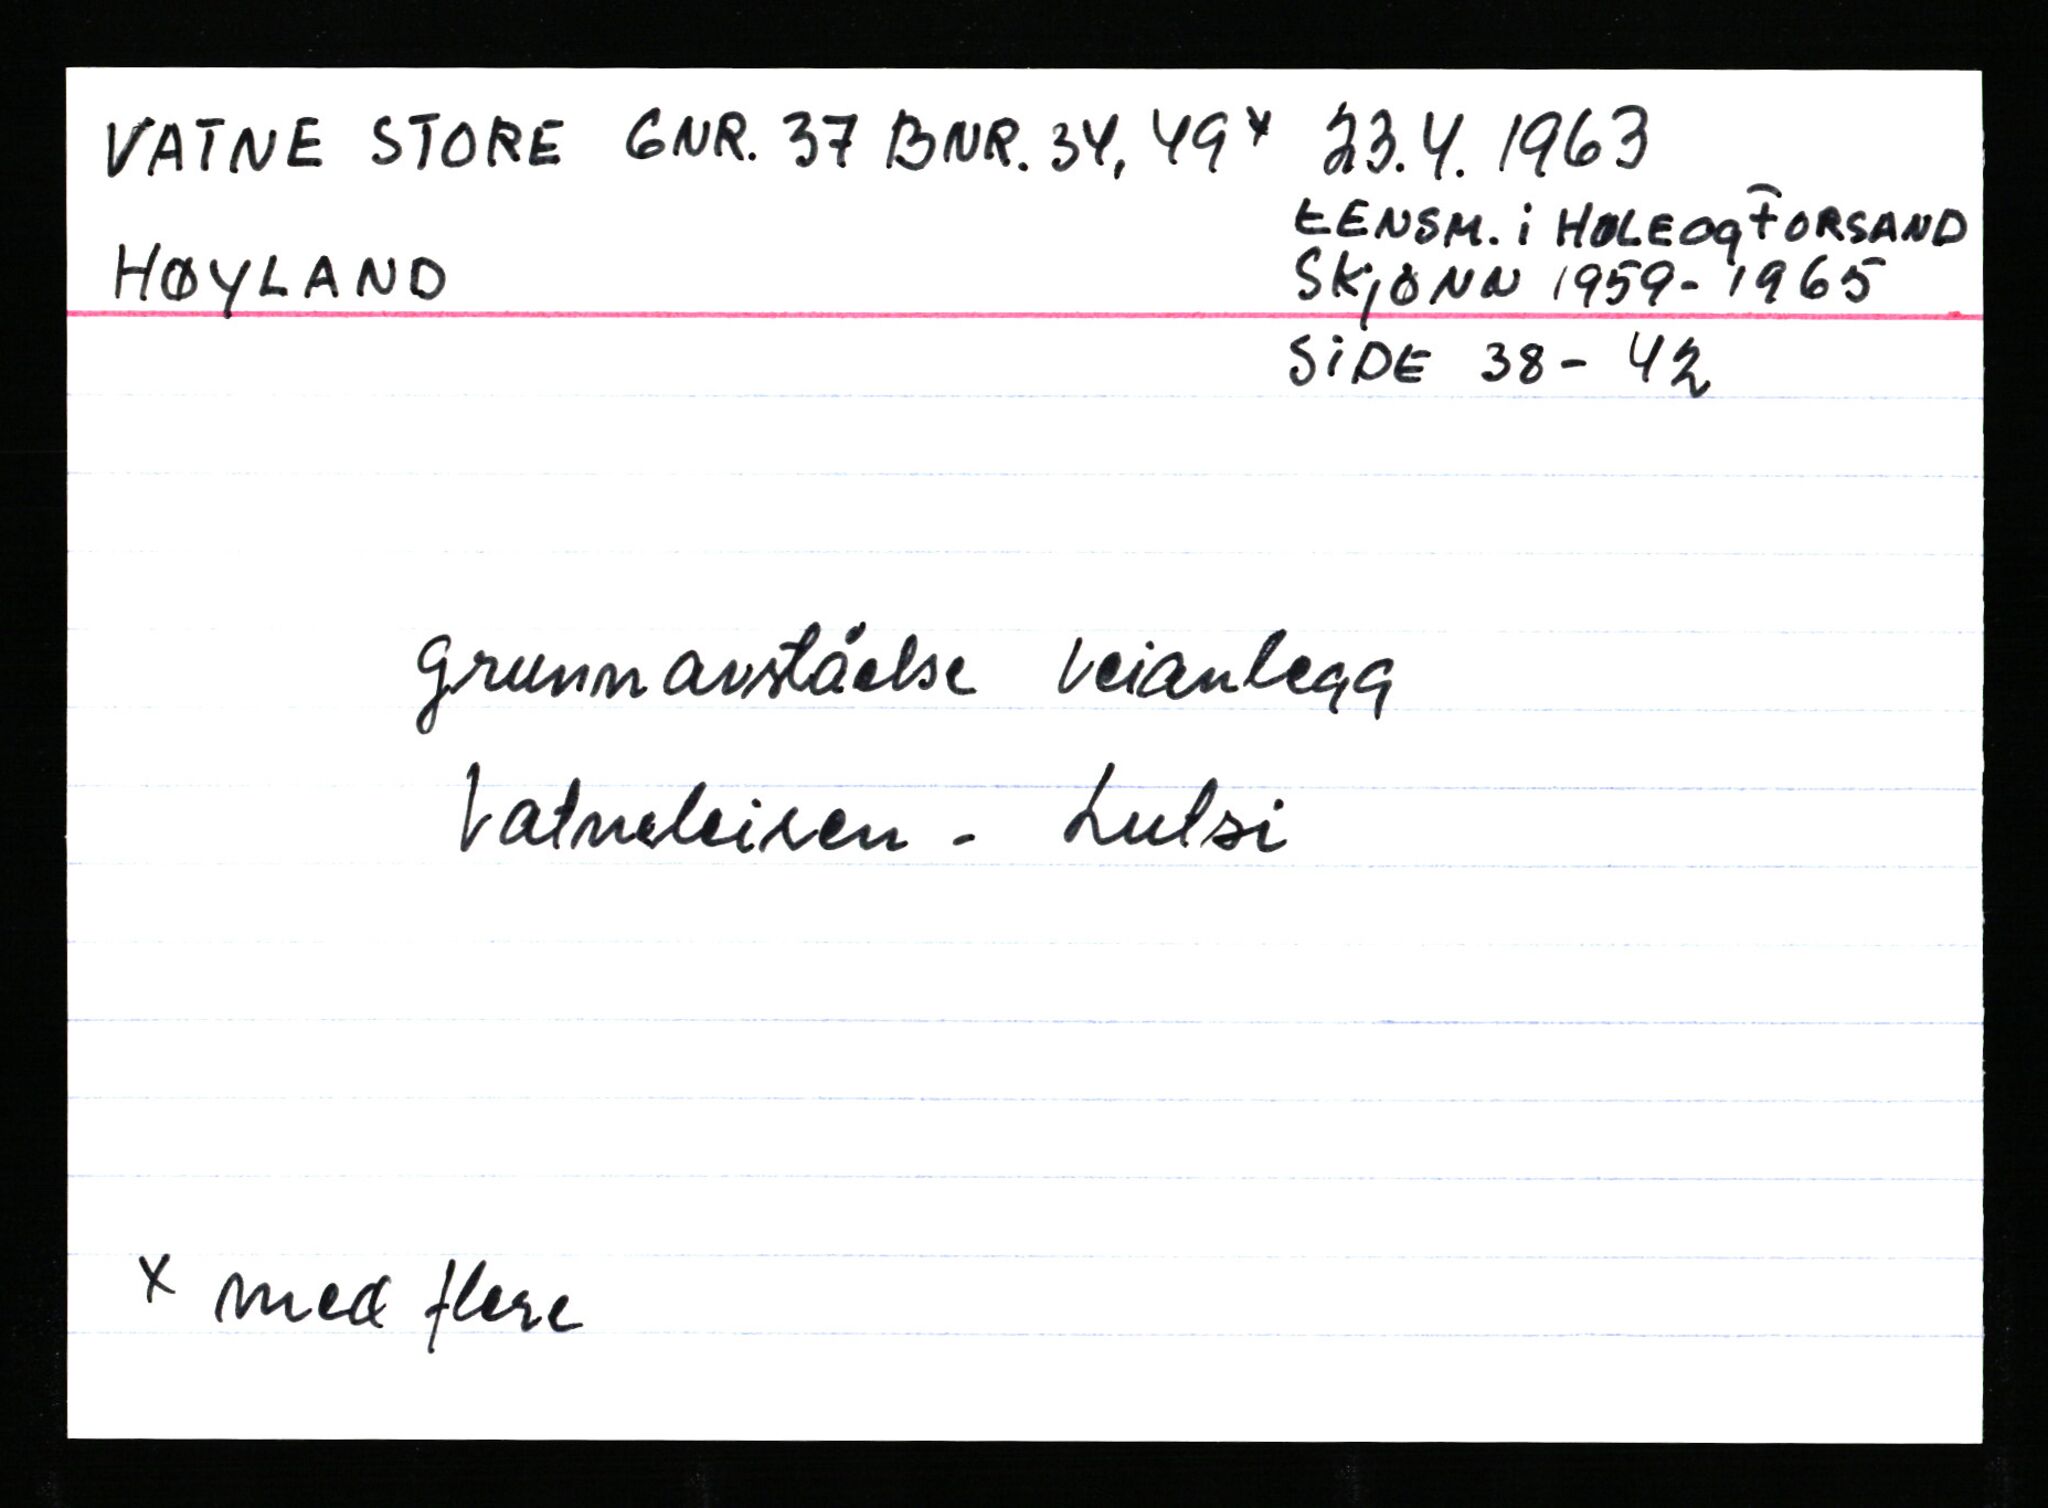 VATNE STORE GNR. 37 BNR. 34, 49x 23.4. 1963
LENSM. i HØLE og FORSAND
HØYLAND
SKJØNN 1959 - 1965
SIDE 38 - 42
Grunnavståelse veianlegg
Vatneleiren - Lutsi
x med flere